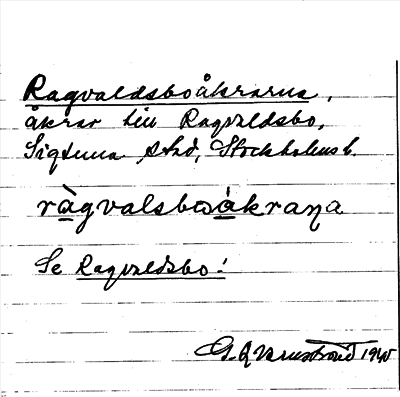 Ragvaldsboåkrarna,
åkrar till Ragvaldsbo,
Sigtuna stad, Stockholms l.
ràgvalsbωåkraɳa
Se Ragvaldsbo!
G. 1940